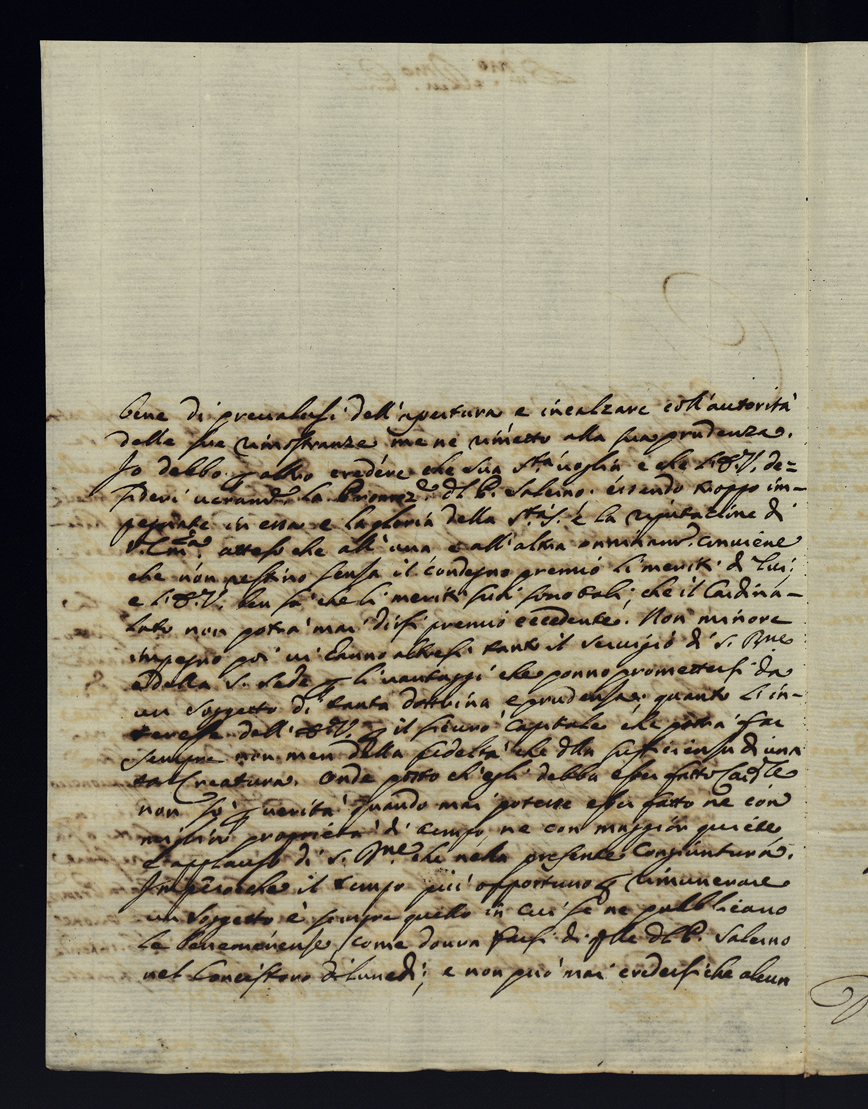 bene di prevalersi dell'apertura e incalzare coll'autorità
delle sue rimostranze me ne rimetto alla sua prudenza.
Io debbo p altro credere che sua Stà voglia e che V. Em. de=
sideri veramte la Promozne del P. Salerno, essendo troppo im=
pegnate in essa e la gloria della S. S. e la reputazione di
V. Emza, atteso che all'una e all'altra omninamte conviene
che non restino senza il condegno premio li meriti di Lui;
e V. Em. ben sà che li meriti suoi sono tali, che il Cardina=
lato non potrà mai dirsi premio eccedente. Non minore
impegno poi vi hanno altresi tanto il servigio di S. Bne
e della S. Sede p li vantaggi che ponno promettersi da
un Soggetto di tanta dottrina e prudenza, quanto l'in=
teresse dell' Em. V. p il sicuro Capitale che potrà far
sempre non men della fedeltà che dlla sufficienza di una
tal Creatura. Onde posto ch'egli debba esser fatto Cardle
non sò p verità quando mai potesse esser fatto nè con
miglior proprietà di tempo, ne con maggior quiete
e applauso di S. Bne che nella presente Congiuntura.
Imperoche il tempo più opportuno p rimunerare
un Soggetto è sempre quello in cui se ne pubblicano
le benemerenze, come dovrà farsi di qlle dl P. Salerno
nel Concistoro di Lunedì; e non può mai credersi che alcun